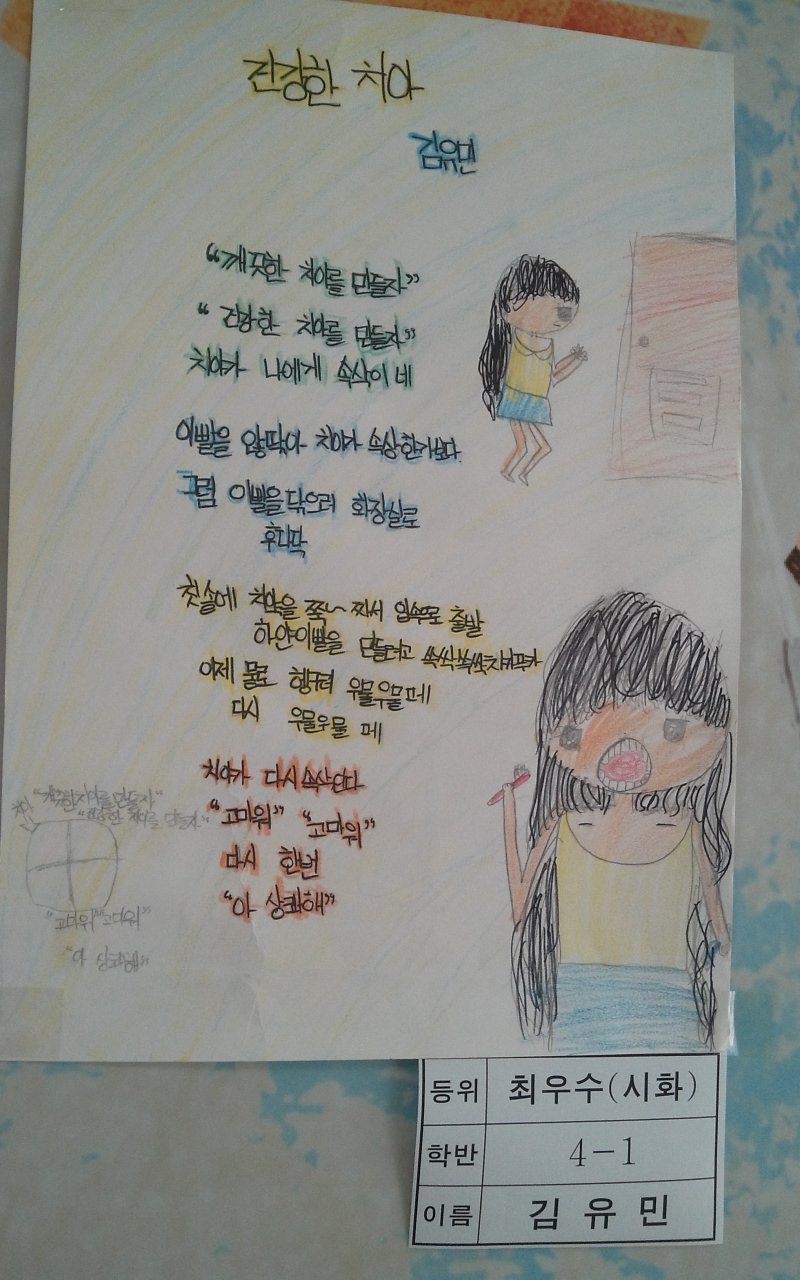 건강한 치아
김유민
“깨끗한 치아를 만들자”
“건강한 치아를 만들자”
치아가 나에게 속삭이네
이빨을 않닦아 치아가 속상한가보다.
그럼 이빨을 닦으러 화장실로
후다닥
칫솔에 치약을 쭉~ 짜서 입속으로 출발
하얀이빨을 만들려고 쓱싹쓱싹치카푸카
이제 물로 헹구려 우물우물 페
다시 우물우물 페
치아가 다시 속삭인다
“고마워” “고마워”
다시 한번
“아 상쾌해”
치아
“깨끗한치아를 만들자”
“건강한 치아를 만들자”
“고마워” “고마워”
“아 상쾌해”
등위 최우수(시화)
학반 4-1
이름 김유민